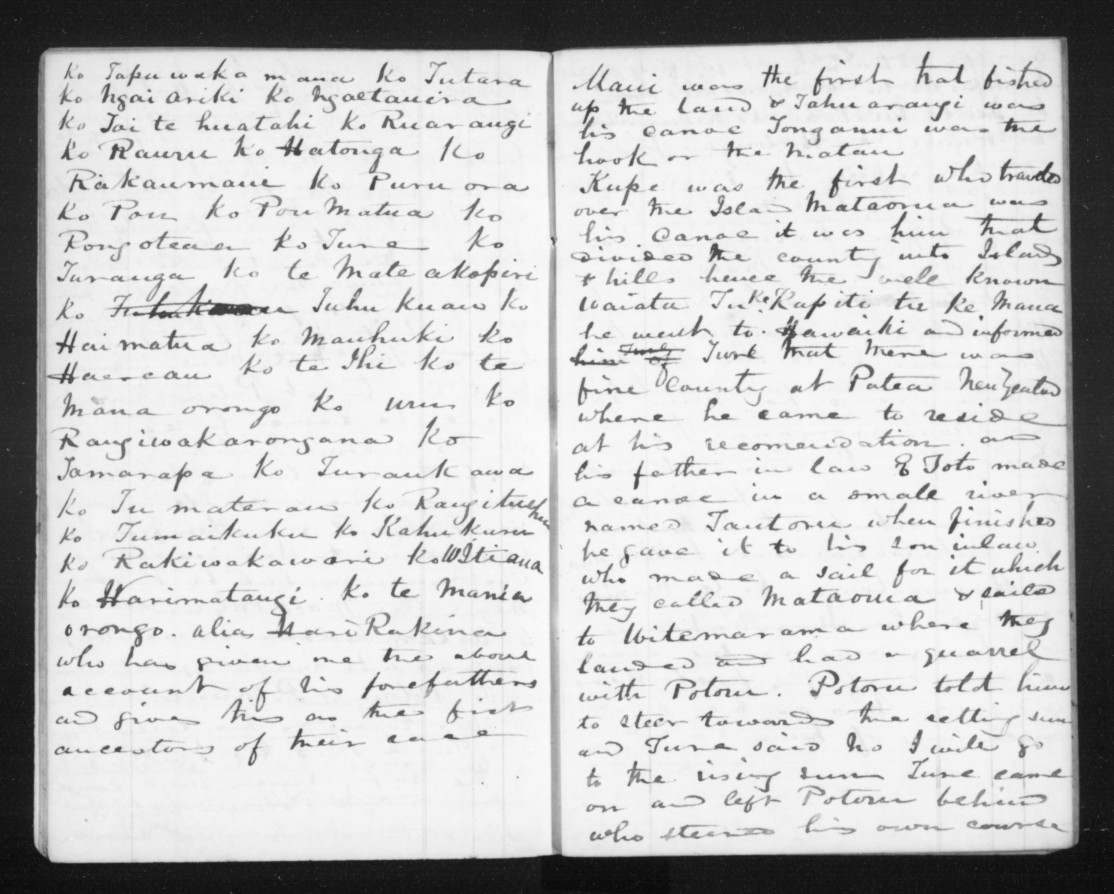 Ko Tapuwaka mana Ko Tutara
Ko Ngai Ariki Ko Ngaetauira
Ko Toi te huatahi Ko Ruarangi
Ko Rauru Ko Hatonga Ko
Rakaumaui Ko Puru ora
Ko Pou Ko Pou Matua Ko
Rongoteaea Ko Ture Ko
Turanga Ko te Mate akopiri
Ko Tuhu Kuau Ko
Hai matua Ko Mauhuki Ko
Ko te Ihi Ko te
Mana orongo Ko uru Ko
Rangiwakarongana Ko
Tamarapa Ko Turauk awa
Ko Tu materau Ko Rangituehu
Ko Tumaikuku Ko Kahukuru
Ko Rakiwakawari Ko
Ko Harimatangi. Ko te Mania
orongo. alias Hari Rakina
who has given me the above
account of his forefathers
and gives this as the first
ancestors of their race
Maui was the first that fished
up the land & Tahuarangi was
his canoe Tonganui was the
hook or the Matau
Kupe was the first who traveled
over the Island Mataorua was
his canoe it was him that
divided the country into Islands
& hills hence the well known
waiata Tu ke Kapiti tu ke Mana
he went to Hawaiki and informed
him Ture of Turi that there was
fine country at Patea New Zealand
where he came to reside
at his recomendation and
his father in law E Toto made
a canoe in a small river
named Tautoru when finished
he gave it to his son inlaw
who made a sail for it which
they called Mataorua & sailed
to Witemarama where they
landed and had a quarrel
with Potoru. Potoru told him
to steer towards the setting sun
and Ture said No I will go
to the rising sun Ture came
on and left Potoru behind
who steered his own course